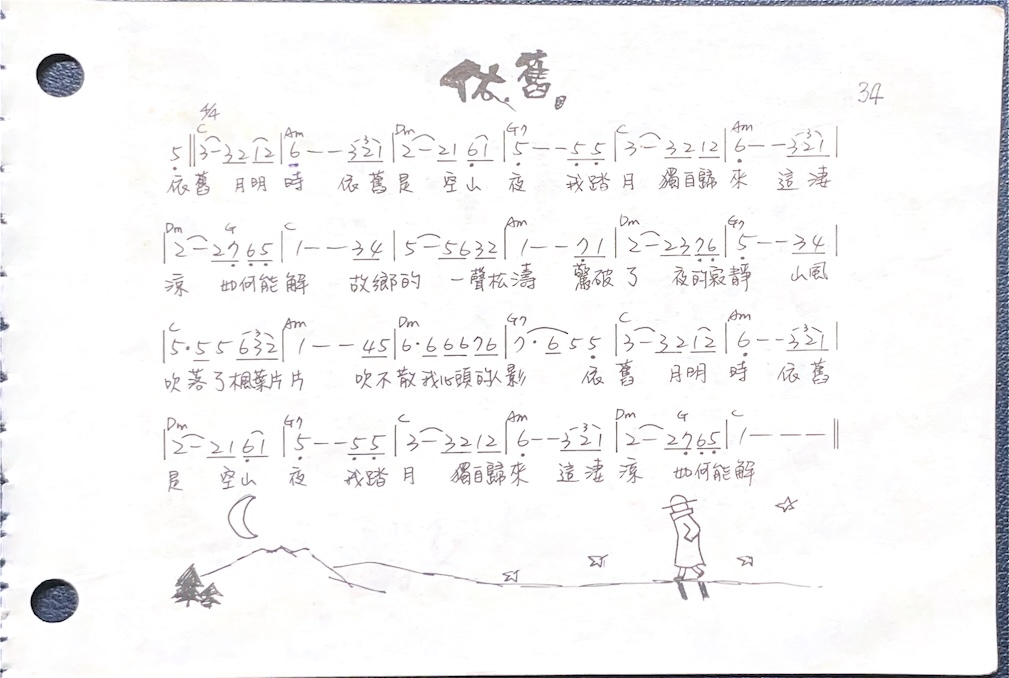 依舊
34
4/4
C Am Dm G7 C Am
5 ‖ 3 - 3 2 1 2 | 6 - - 3 2 1 | 2 - 2 1 6 1 | 5 - - 5 5 | 3 - 3 2 1 2 | 6 - - 3 2 1 |
依舊 月明 時 依舊是 空山 夜 我踏 月 獨自歸 來 這淒
Dm G C Am Dm G7
| 2 - 2 7 6 5 | 1 - - 3 4 | 5 - 5 6 3 2 | 1 - - 7 1 | 2 - 2 3 7 6 | 5 - - 3 4 |
涼 如何能解 故鄉的 一聲松濤 驚破了 夜的寂靜 山風
C Am Dm G7 C Am
| 5 · 5 5 6 3 2 | 1 - - 4 5 | 6 · 6 6 6 7 6 | 7 - · 6 5 5 | 3 - 3 2 1 2 | 6 - - 3 2 1 |
吹落了楓葉片片 吹不散我心頭的人影 依舊 月明 時 依舊
Dm G7 C Am Dm G C
| 2 - 2 1 6 1 | 5 - - 5 5 | 3 - 3 2 1 2 | 6 - - 3 2 1 | 2 - 2 7 6 5 | 1 - - - ‖
是 空山 夜 我踏 月 獨自歸來 這淒 涼 如何能解